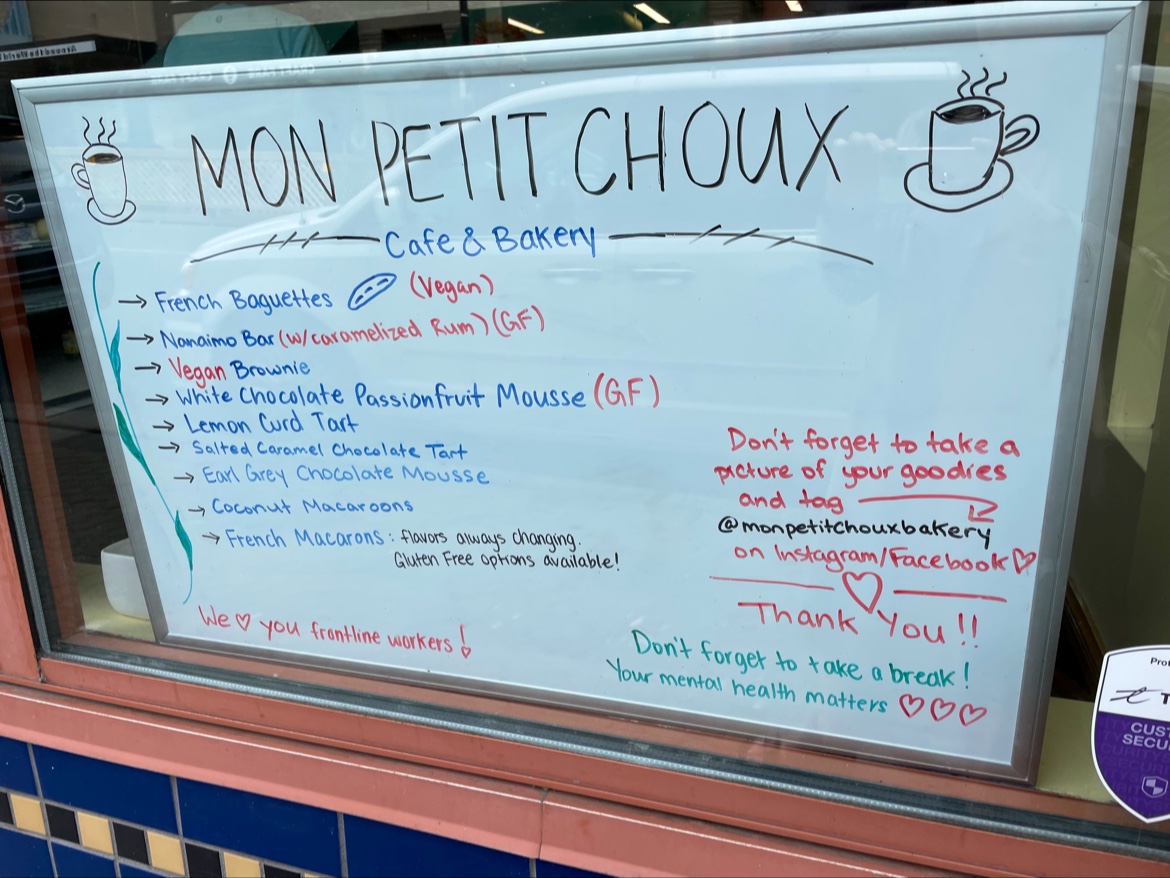 MON PETIT CHOUX
Cafe & Bakery
→ French Baguettes (Vegan)
→ Nanaimo Bar (w/caramelized Rum) (GF)
→ Vegan Brownie
→ White Chocolate Passionfruit Mousse (GF)
→ Lemon Curd Tart
→ Salted Caramel Chocolate Tart
→ Earl Grey Chocolate Mousse
→ Coconut Macaroons
→ French Macarons: flavors always changing.
Gluten Free options available!
We ♡ you frontline workers!
Don't forget to take a
picture of your goodies
and tag
@monpetitchouxbakery
on Instagram/Facebook ♡
Thank You!!
Don't forget to take a break!
Your mental health matters ♡♡♡